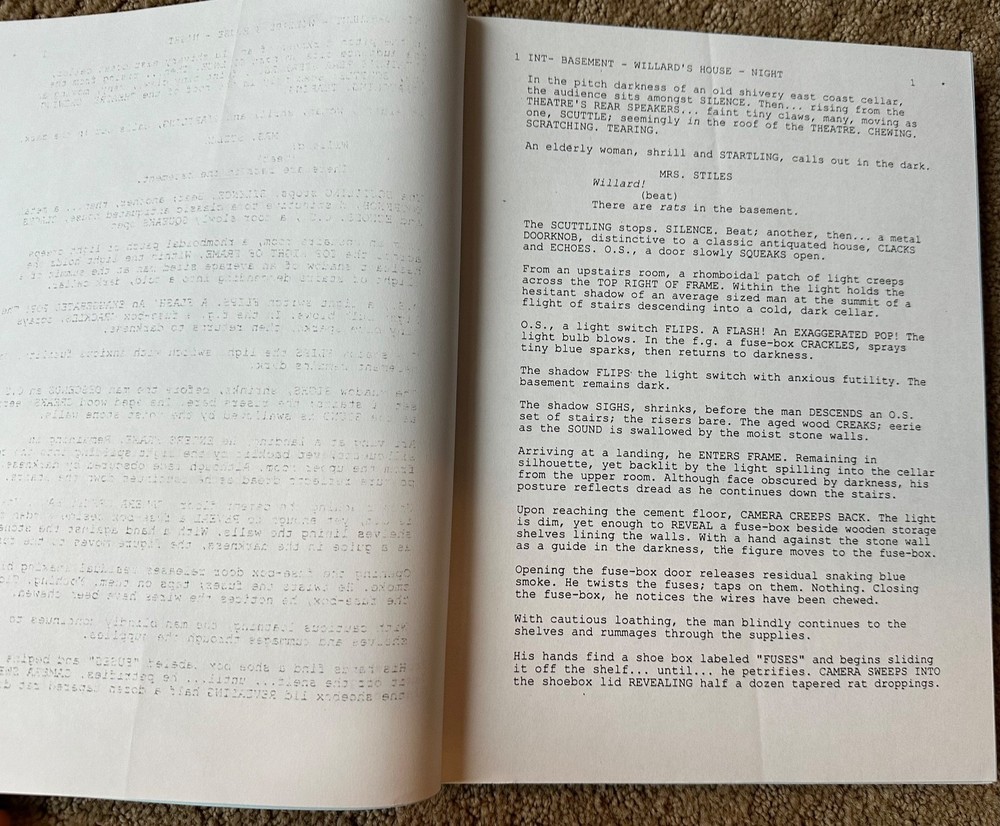 1 INT- BASEMENT - WILLARD'S HOUSE - NIGHT 1
In the pitch darkness of an old shivery east coast cellar,
the audience sits amongst SILENCE. Then... rising from the
THEATRE'S REAR SPEAKERS... faint tiny claws, many, moving as
one, SCUTTLE; seemingly in the roof of the THEATRE. CHEWING.
SCRATCHING. TEARING.
An elderly woman, shrill and STARTLING, calls out in the dark.
MRS. STILES
Willard!
(beat)
There are rats in the basement.
The SCUTTLING stops. SILENCE. Beat; another, then... a metal
DOORKNOB, distinctive to a classic antiquated house, CLACKS
and ECHOES. O.S., a door slowly SQUEAKS open.
From an upstairs room, a rhomboidal patch of light creeps
across the TOP RIGHT OF FRAME. Within the light holds the
hesitant shadow of an average sized man at the summit of a
flight of stairs descending into a cold, dark cellar.
O.S., a light switch FLIPS. A FLASH! An EXAGGERATED POP! The
light bulb blows. In the f.g. a fuse-box CRACKLES, sprays
tiny blue sparks, then returns to darkness.
The shadow FLIPS the light switch with anxious futility. The
basement remains dark.
The shadow SIGHS, shrinks, before the man DESCENDS an O.S.
set of stairs; the risers bare. The aged wood CREAKS; eerie
as the SOUND is swallowed by the moist stone walls.
Arriving at a landing, he ENTERS FRAME. Remaining in
silhouette, yet backlit by the light spilling into the cellar
from the upper room. Although face obscured by darkness, his
posture reflects dread as he continues down the stairs.
Upon reaching the cement floor, CAMERA CREEPS BACK. The light
is dim, yet enough to REVEAL a fuse-box beside wooden storage
shelves lining the walls. With a hand against the stone wall
as a guide in the darkness, the figure moves to the fuse-box.
Opening the fuse-box door releases residual snaking blue
smoke. He twists the fuses; taps on them. Nothing. Closing
the fuse-box, he notices the wires have been chewed.
With cautious loathing, the man blindly continues to the
shelves and rummages through the supplies.
His hands find a shoe box labeled "FUSES" and begins sliding
it off the shelf... until... he petrifies. CAMERA SWEEPS INTO
the shoebox lid REVEALING half a dozen tapered rat droppings.